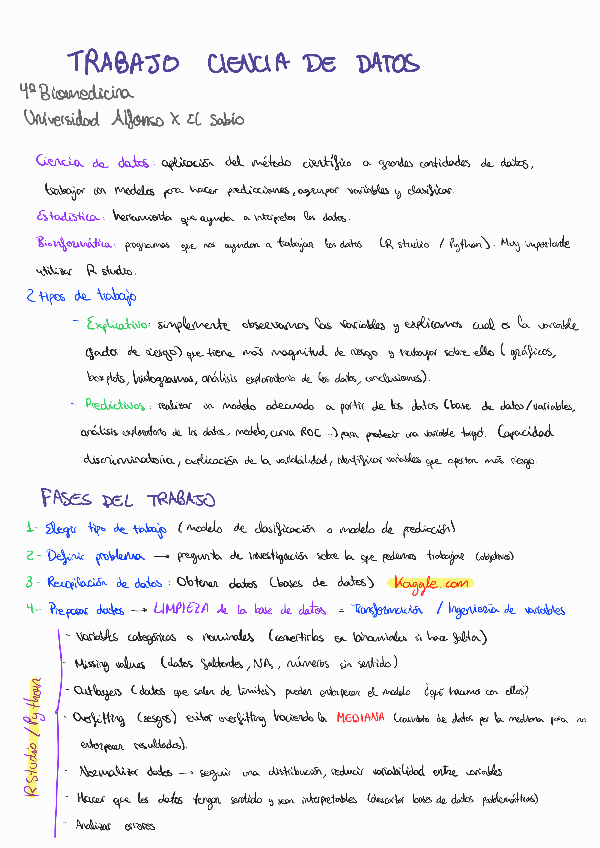 TRABAJO CIENCIA DE DATOS
4º Biomedicina
Universidad Alfonso X El Sabio
Ciencia de datos: aplicación del método científico a grandes cantidades de datos,
trabajar con modelos para hacer predicciones, agrupar variables y clasificar.
Estadística: herramienta que ayuda a interpretar los datos.
Bioinformática: programas que nos ayudan a trabajar los datos (R studio / Python). Muy importante
utilizar R studio.
2 tipos de trabajo
- Explicativo: simplemente observamos las variables y explicamos cual es la variable
(factor de riesgo) que tiene más magnitud de riesgo y trabajar sobre ello (gráficos,
boxplots, histogramas, análisis exploratorio de los datos, conclusiones).
- Predictivos: realizar un modelo adecuado a partir de los datos (base de datos/variables,
análisis exploratorio de los datos, modelo, curva ROC ...) para predecir una variable target. Capacidad
discriminatoria, explicación de la variabilidad, identificar variables que aportan más riesgo.
FASES DEL TRABAJO
1- Elegir tipo de trabajo (modelo de clasificación o modelo de predicción)
2- Definir problema → pregunta de investigación sobre la que podemos trabajar (objetivos)
3- Recopilación de datos: Obtener datos (bases de datos) Kaggle.com
4- Preparar datos → LIMPIEZA de la base de datos = Transformación / Ingeniería de variables
R studio / Python
- Variables categóricas o nominales (convertirlas en binominales si hace falta)
- Missing values (datos faltantes, NA, números sin sentido)
- Outlayers (datos que salen de límites) pueden entorpecer el modelo ¿qué hacemos con ellos?
- Overfitting (sesgos) evitar overfitting haciendo la MEDIANA (cambio de datos por la mediana para no
entorpecer resultados).
- Normalizar datos → seguir una distribución, reducir variabilidad entre variables
- Hacer que los datos tengan sentido y sean interpretables (descartar bases de datos problemáticos)
- Analizar errores